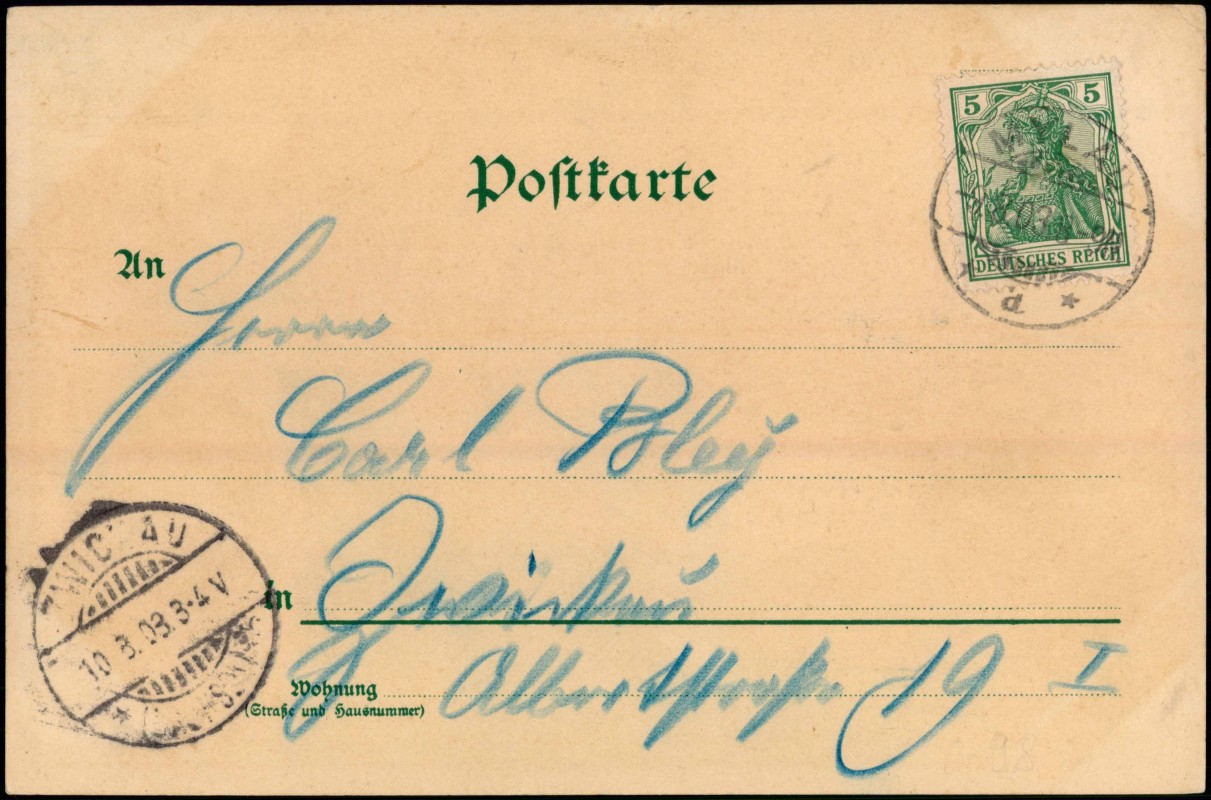 Postkarte
5 5
DEUTSCHES REICH
P *
An Herrn
Carl Bley
in Zwickau
Wohnung
(Straße und Hausnummer)
Albertstraße 19 I
ZWICKAU
10.3.03.3-4V
*(SACHSEN)